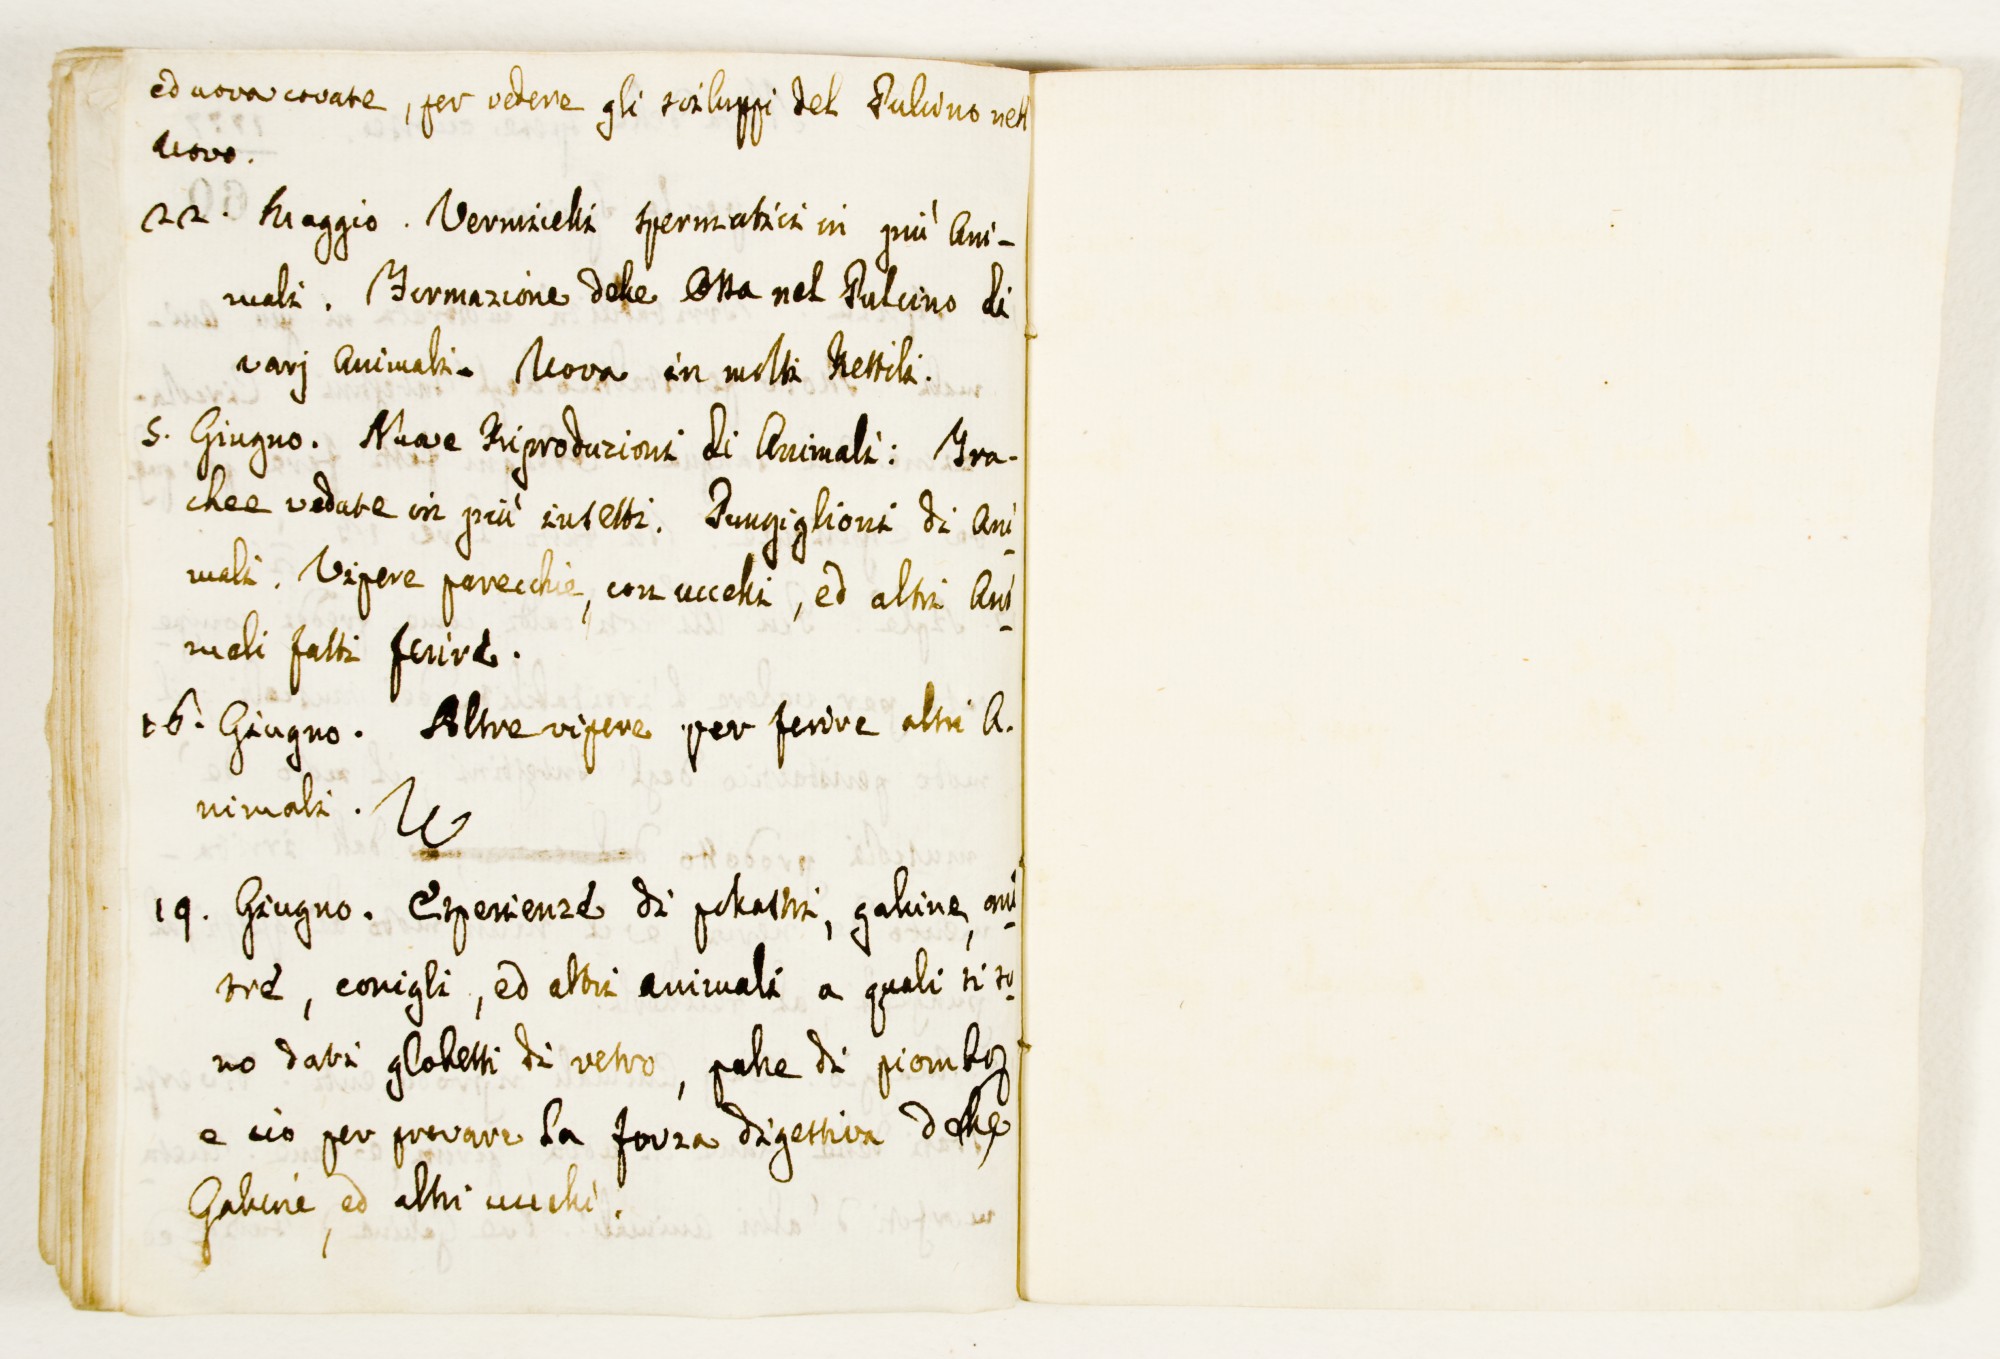 ed uova covate, per vedere gli sviluppi del Pulcino nell
Uovo.
22. Maggio. Vermicelli spermatici in più Ani-
mali. Formazione delle Ossa nel Pulcino di
varj Animali. Uova in molti Rettili.
5. Giugno. Nuove Riproduzioni di Animali: Tra-
chee vedute in più insetti. Pungiglioni di Ani-
mali. Vipere parecchie, con uccelli, ed altri Ani-
mali fatti ferire.
16. Giugno. Altre vipere per ferire altri A-
nimali.
19. Giugno. Esperienze di pollastri, galline, ani-
tre, conigli, ed altri animali a quali si so-
no dati globetti di vetro, palle di piombo,
e ciò per provare la forza digestiva delle
Galline, ed altri uccelli.